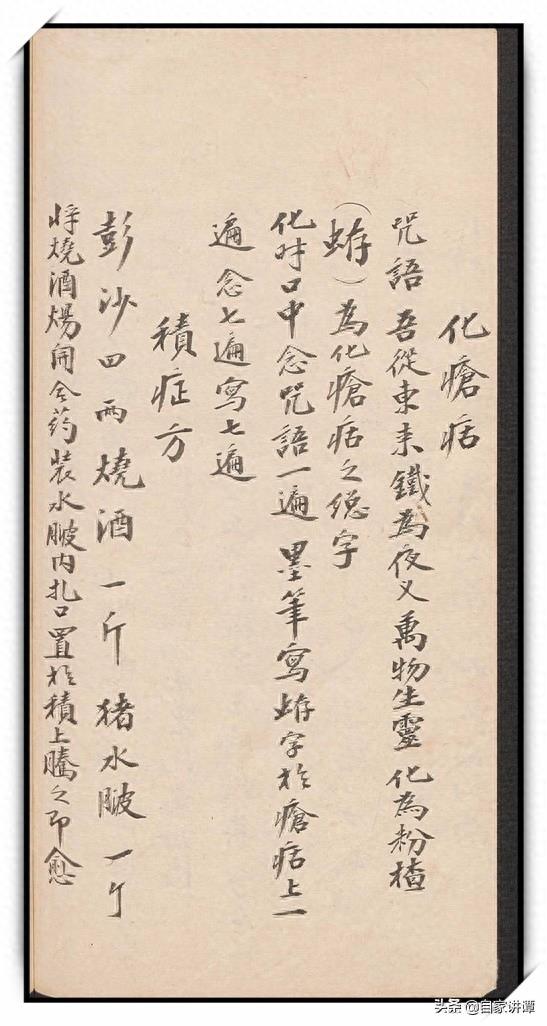 化瘡痁
咒語 吾從東来鐵為夜义禹物生靈 化為粉楂
（蛼）為化瘡痁之總字
化时口中念咒語一遍 墨筆寫蛼字於瘡痁上一
遍 念七遍寫七遍
積症方
彭沙四兩燒酒一斤 猪水脧一个
将燒酒煬開合药装水脧内扎口置於積上騰之即愈
头条 @自家讲谭